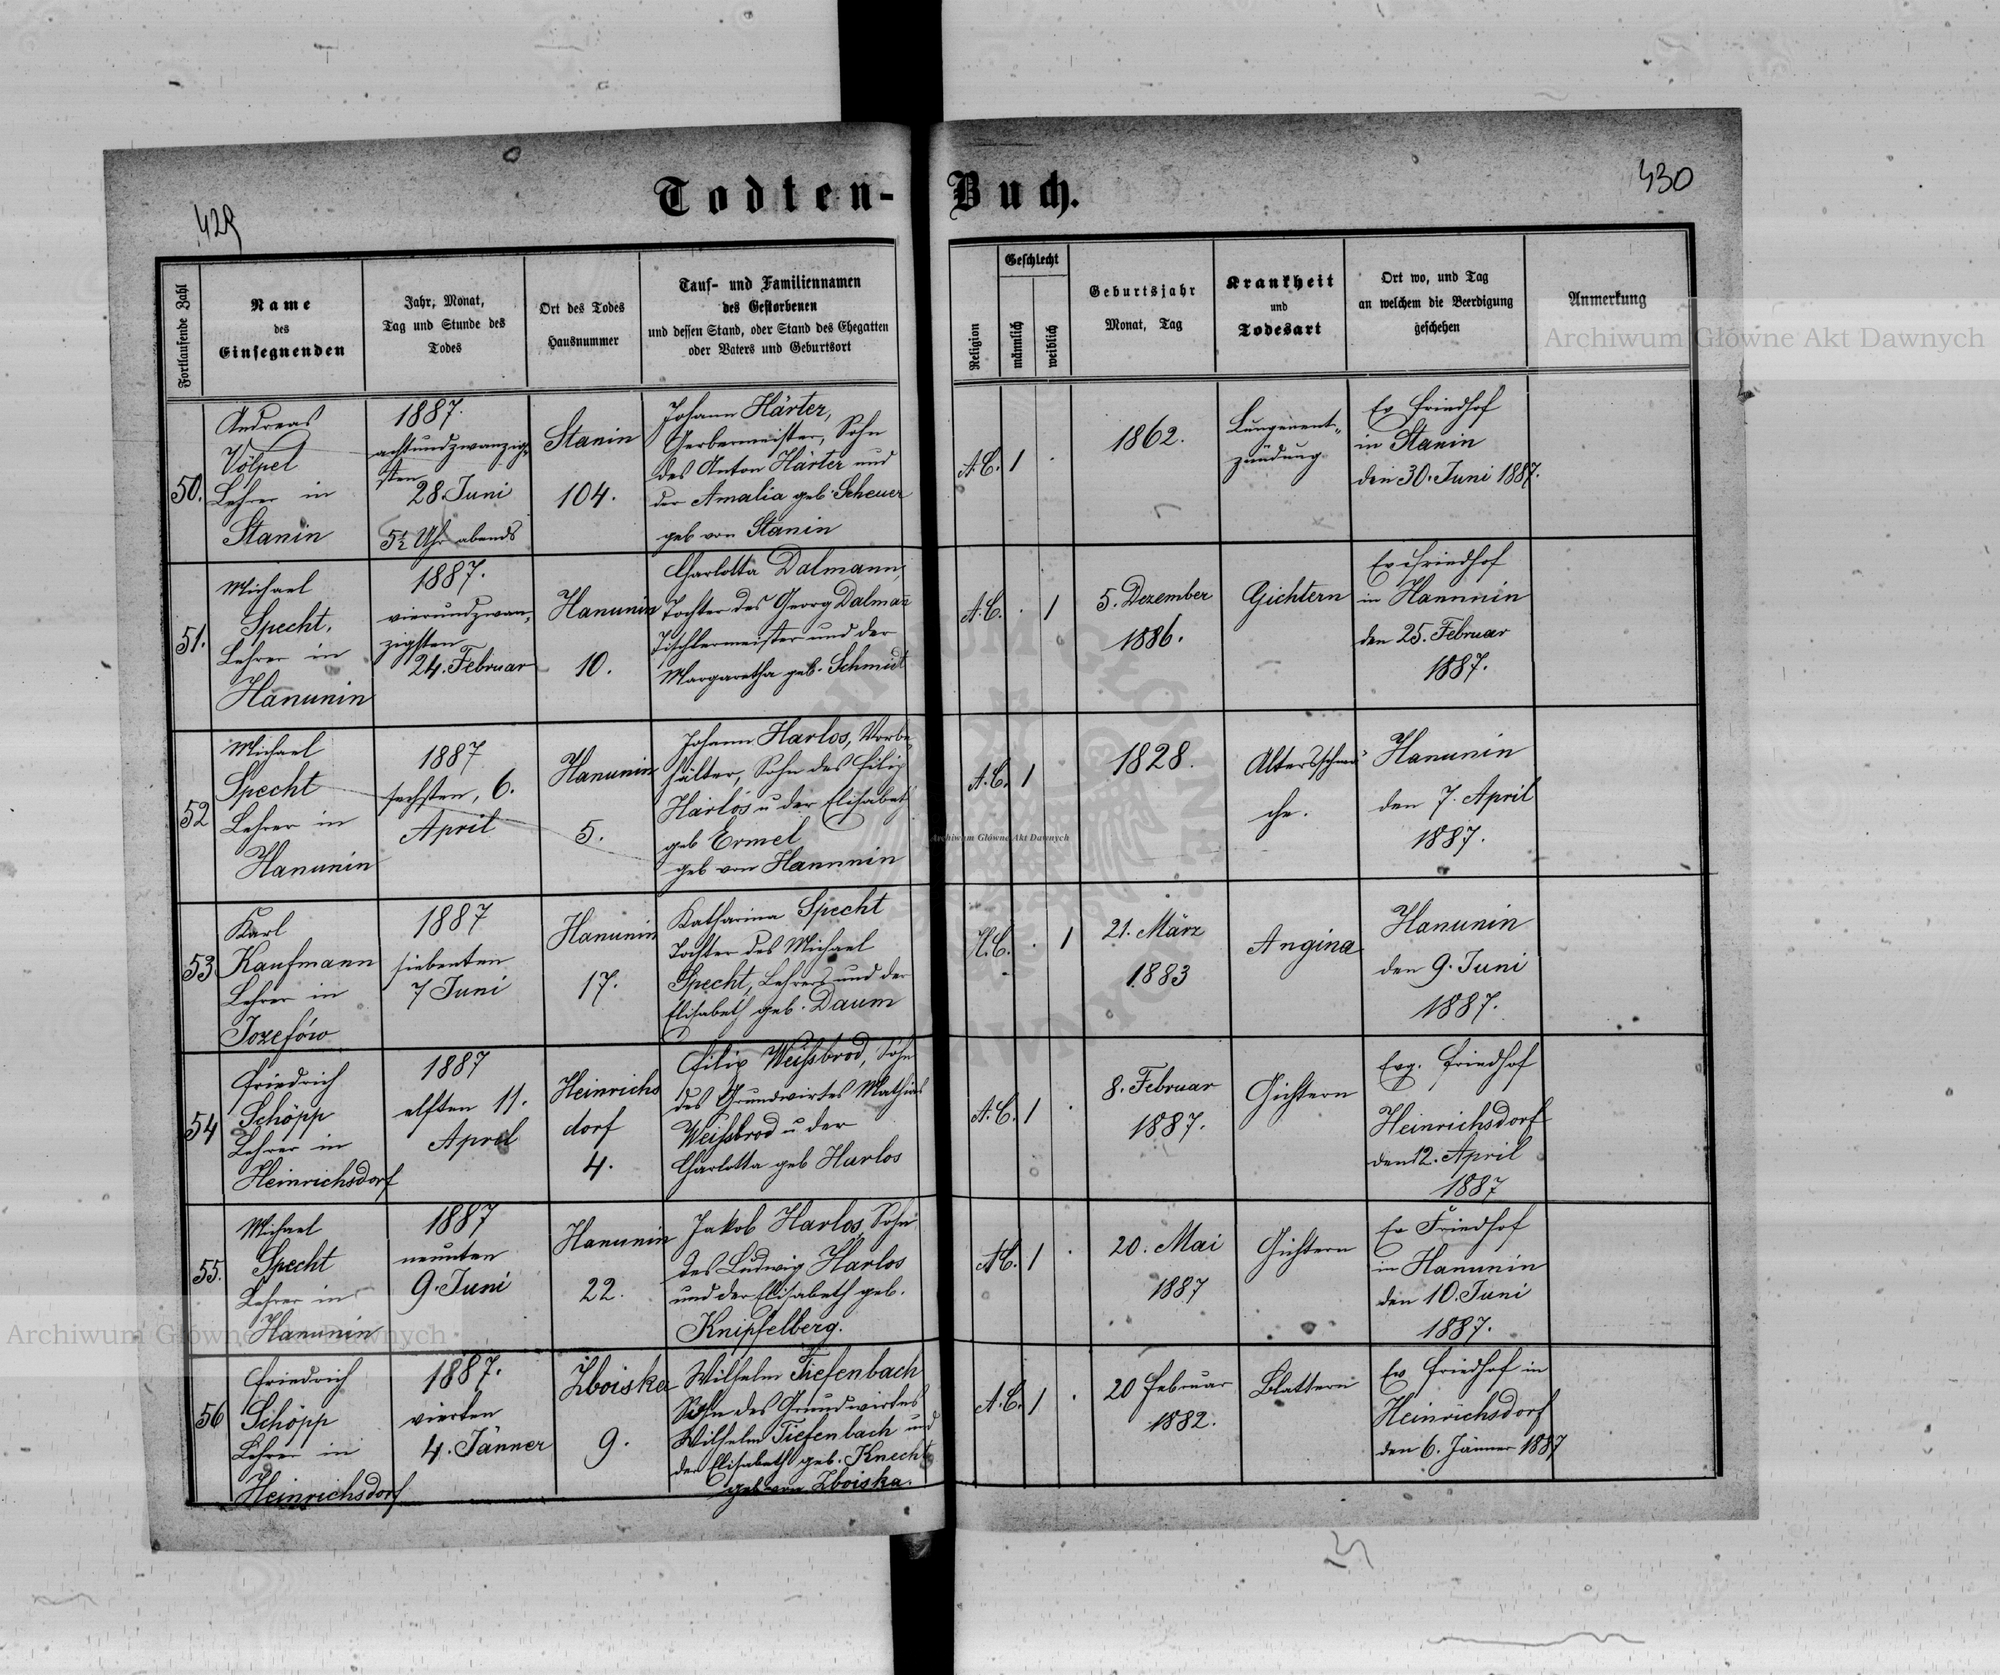 429
Todten-Buch.
430
Fortlaufende Zahl
Name
des
Einsegnenden
Jahr, Monat,
Tag und Stunde des
Todes
Ort des Todes
Hausnummer
Tauf- und Familiennamen
des Gestorbenen
und dessen Stand, oder Stand des Ehegatten
oder Vaters und Geburtsort
Religion
Geschlecht
männlich
weiblich
Geburtsjahr
Monat, Tag
Krankheit
und
Todesart
Ort wo, und Tag
an welchem die Beerdigung
geschehen
Anmerkung
50.
Andreas
Völpel
Lehrer in
Stanin
1887.
achtundzwanzig-
sten
28. Juni
5½ Uhr abends
Stanin
104.
Johann Härter,
Gerbermeister, Sohn
des Anton Härter und
der Amalia geb. Scheuer
geb von Stanin
A.C.
1
.
1862.
Lungenent-
zündung
Ev Friedhof
in Stanin
den 30. Juni 1887.
51.
Michael
Specht,
Lehrer in
Hanunin
1887.
vierundzwan-
zigsten
24. Februar
Hanunin
10.
Charlotta Dalmann,
Tochter des Georg Dalmañ
Tischlermeister und der
Margaretha geb. Schmidt
A.C.
.
1
5. Dezember
1886.
Gichtern
Ev Friedhof
in Hanunin
den 25. Februar
1887.
52
Michael
Specht
Lehrer in
Hanunin
1887
sechsten, 6.
April
Hanunin
5.
Johann Harlos, Vorbe
hälter, Sohn des Filip
Harlos u der Elisabeth
geb Ermel
geb von Hanunin
A.C.
1
1828.
Altersschwä
che.
Hanunin
den 7. April
1887.
53
Karl
Kaufmann
Lehrer in
Jozefów
1887
siebenten
7 Juni
Hanunin
17.
Katharina Specht
Tochter des Michael
Specht, Lehrers und der
Elisabeth geb. Daum
H.C.
.
1
21. März
1883
Angina
Hanunin
den 9. Juni
1887.
54
Friedrich
Schöpp
Lehrer in
Heinrichsdorf
1887
elften 11.
April
Heinrichs
dorf
4.
Filip Weißbrod, Sohn
des Grundwirtes Mathias
Weißbrod u der
Charlotta geb Harlos
A.C.
1
.
8. Februar
1887.
Gichtern
Evg. Friedhof
Heinrichsdorf
den 12. April
1887
55.
Michael
Specht
Lehrer in
Hanunin
1887
neunten
9. Juni
Hanunin
22.
Jakob Harlos, Sohn
des Ludwig Harlos
und der Elisabeth geb.
Knipfelberg.
A.C.
1
.
20. Mai
1887
Gichtern
Ev Friedhof
in Hanunin
den 10. Juni
1887.
56
Friedrich
Schöpp
Lehrer in
Heinrichsdorf
1887.
vierten
4. Jänner
Zboiska
9.
Wilhelm Tiefenbach
Sohn des Grundwirtes
Wilhelm Tiefenbach und
der Elisabeth geb. Knecht
geb von Zboiska.
A.C.
1
.
20 Februar
1882.
Blattern
Ev Friedhof in
Heinrichsdorf
den 6. Jänner 1887
Archiwum Główne Akt Dawnych
Archiwum Główne Akt Dawnych
Archiwum Główne Akt Dawnych